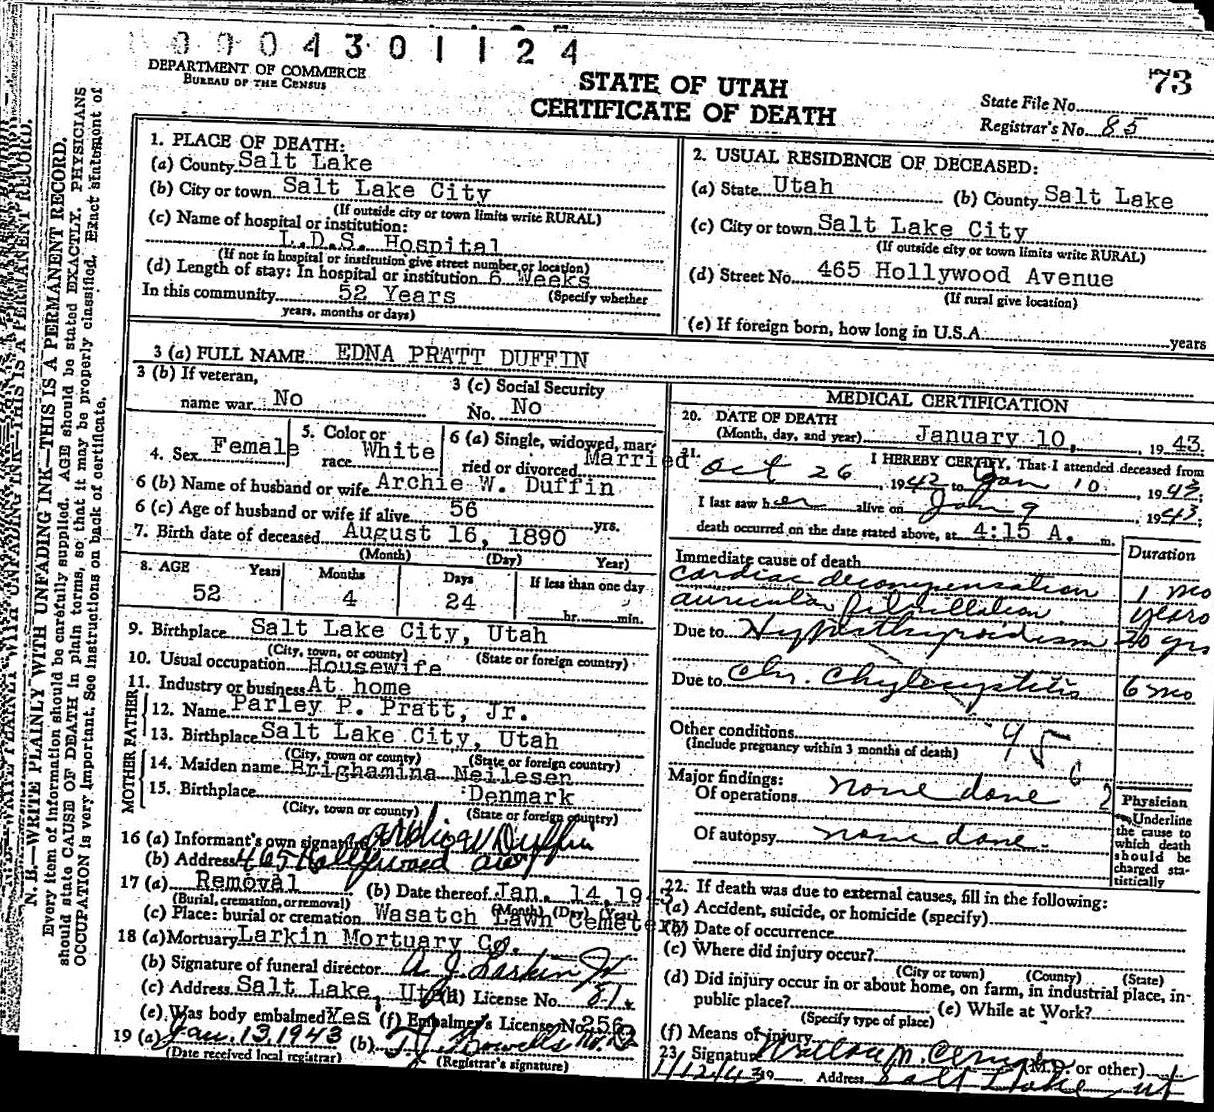 0004301124
DEPARTMENT OF COMMERCE
BUREAU OF THE CENSUS
STATE OF UTAH
CERTIFICATE OF DEATH
73
State File No.
Registrar's No. 85
N. B.—WRITE PLAINLY WITH UNFADING INK—THIS IS A PERMANENT RECORD.
Every item of information should be carefully supplied. AGE should be stated EXACTLY. PHYSICIANS
should state CAUSE OF DEATH in plain terms, so that it may be properly classified. Exact statement of
OCCUPATION is very important. See instructions on back of certificate.
1. PLACE OF DEATH:
(a) County Salt Lake
(b) City or town Salt Lake City
(If outside city or town limits write RURAL)
(c) Name of hospital or institution:
L.D.S. Hospital
(If not in hospital or institution give street number or location)
(d) Length of stay: In hospital or institution 6 Weeks
In this community 52 Years (Specify whether
years, months or days)
2. USUAL RESIDENCE OF DECEASED:
(a) State Utah (b) County Salt Lake
(c) City or town Salt Lake City
(If outside city or town limits write RURAL)
(d) Street No. 465 Hollywood Avenue
(If rural give location)
(e) If foreign born, how long in U.S.A. years
3 (a) FULL NAME EDNA PRATT DUFFIN
3 (b) If veteran,
name war No
3 (c) Social Security
No. No
4. Sex Female
5. Color or
race White
6 (a) Single, widowed, mar-
ried or divorced Married
6 (b) Name of husband or wife Archie W. Duffin
6 (c) Age of husband or wife if alive 56 yrs.
7. Birth date of deceased August 16, 1890
(Month) (Day) Year)
8. AGE Years Months Days If less than one day
52 4 24 hr. min.
9. Birthplace Salt Lake City, Utah
(City, town, or county) (State or foreign country)
10. Usual occupation Housewife
11. Industry or business At home
FATHER
12. Name Parley P. Pratt, Jr.
13. Birthplace Salt Lake City, Utah
(City, town or county) (State or foreign country)
MOTHER
14. Maiden name Brighamina Neilesen
15. Birthplace Denmark
(City, town or county) (State or foreign country)
16 (a) Informant's own signature Archie W Duffin
(b) Address 465 Hollywood ave
17 (a) Removal (b) Date thereof Jan. 14, 1943
(Burial, cremation, or removal) (Month) (Day) (Year)
(c) Place: burial or cremation Wasatch Lawn Cemetery
18 (a) Mortuary Larkin Mortuary Co.
(b) Signature of funeral director A J Larkin Jr
(c) Address Salt Lake, Utah (d) License No. 81
(e) Was body embalmed Yes (f) Embalmer's License No. 256
19 (a) Jan. 13, 1943 (b)
(Date received local registrar) (Registrar's signature)
MEDICAL CERTIFICATION
20. DATE OF DEATH
(Month, day, and year) January 10, 1943.
21. I HEREBY CERTIFY, That I attended deceased from
Oct 26, 1942 to Jan 10, 1943;
I last saw her alive on Jan 9, 1943;
death occurred on the date stated above, at 4:15 A. m.
Duration
Immediate cause of death
cardiac decompensation 1 mo
auricular fibrillation years
Due to Hyperthyroidism 20 yrs
Due to Chr. Chylecystitis 6 mo
Other conditions
(Include pregnancy within 3 months of death)
45
6
2
Major findings:
Of operations none done
Of autopsy none done
Physician
Underline
the cause to
which death
should be
charged sta-
tistically
22. If death was due to external causes, fill in the following:
(a) Accident, suicide, or homicide (specify)
(b) Date of occurrence
(c) Where did injury occur?
(City or town) (County) (State)
(d) Did injury occur in or about home, on farm, in industrial place, in
public place? (e) While at Work?
(Specify type of place)
(f) Means of injury
23. Signature (M.D. or other)
1/12/43 19 Address Salt Lake ut